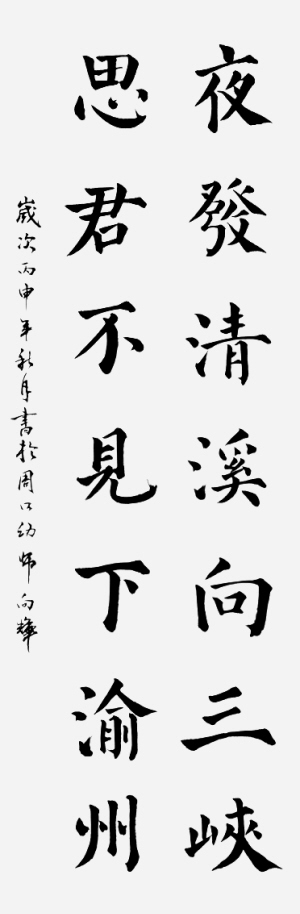 夜發清溪向三峽
思君不見下渝州
歲次丙申年秋月書於周口幼師向輝